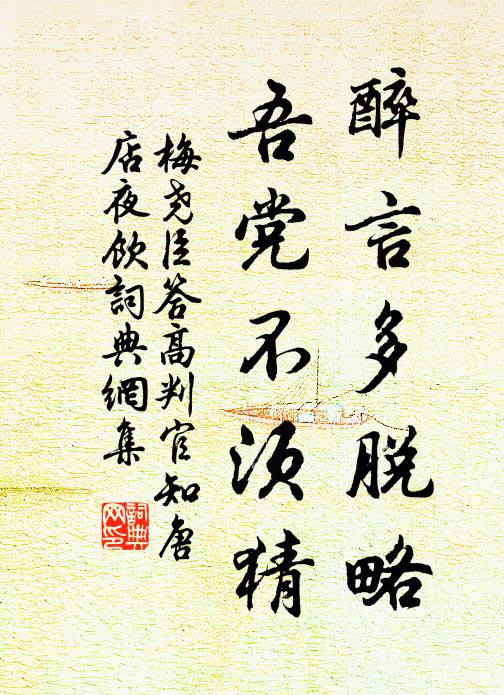 醉言多脱略
吾党不须猜
梅尧臣答高判官知唐
店夜饮詞典網集
詞典
网印